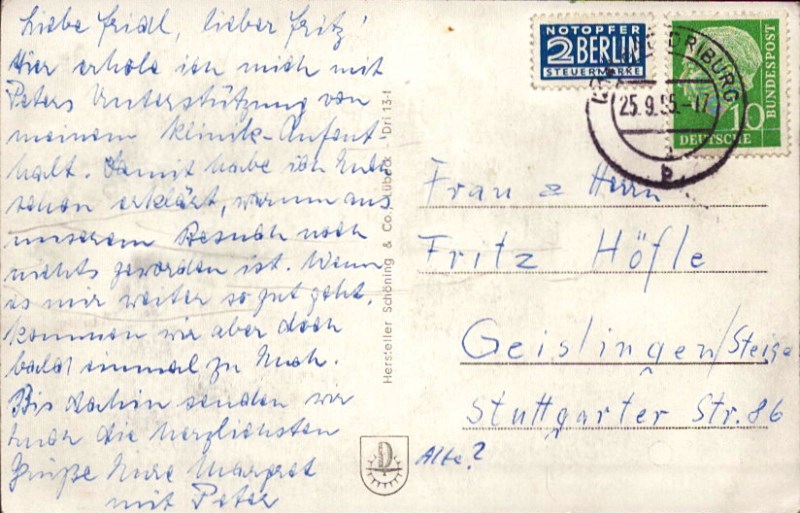 Liebe Fridl, lieber Fritz!
Hier erhole ich mich mit
Peters Unterstützung von
meinem Klinik-Aufent-
halt. Damit habe ich Euch
schon erklärt, warum aus
unserem Besuch noch
nichts geworden ist. Wenn
es mir weiter so gut geht,
kommen wir aber doch
bald einmal zu Euch.
Bis dahin senden wir
Euch die herzlichsten
Grüße Eure Margret
mit Peter
Hersteller Schöning & Co., Lübeck - Dri 13-1
D
NOTOPFER
2 BERLIN
STEUERMARKE
DRIBURG
25.9.55.-17
b
10
DEUTSCHE
BUNDESPOST
Frau & Herrn
Fritz Höfle
Geislingen/Steige
Stuttgarter Str. 86
Alte?